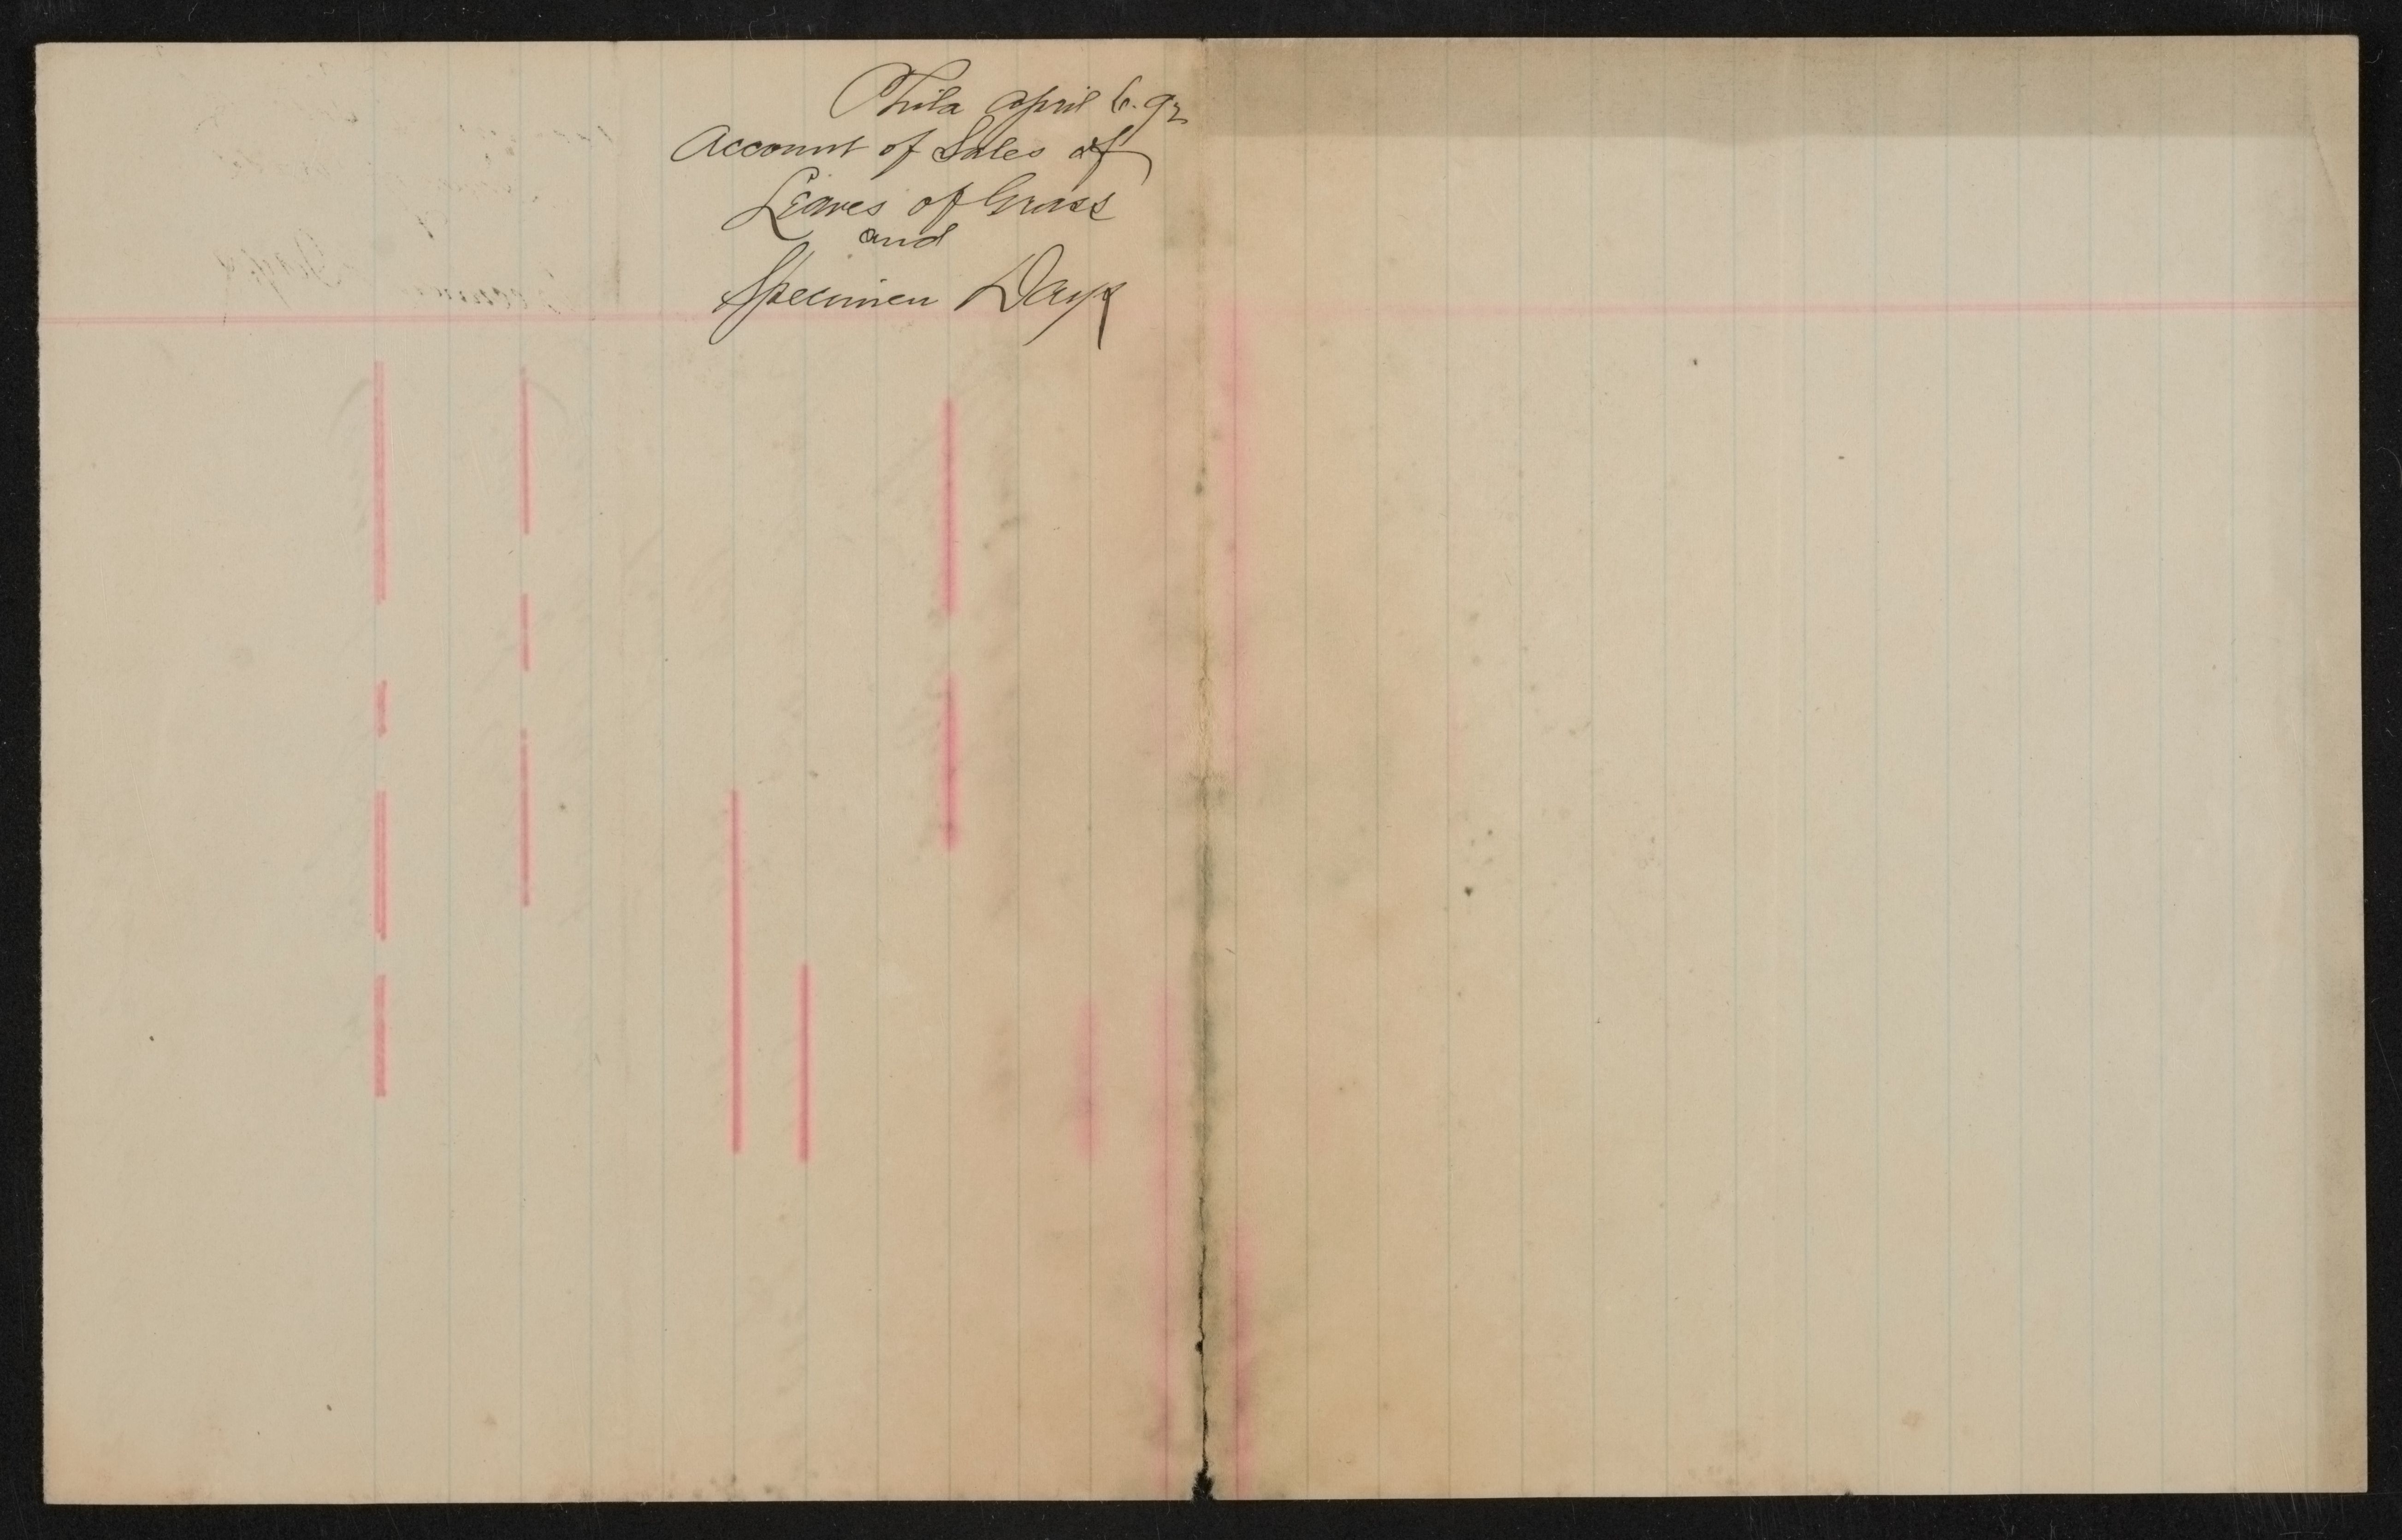 Phila April 6. 92
Account of Sales of
Leaves of Grass
and
Specimen Days